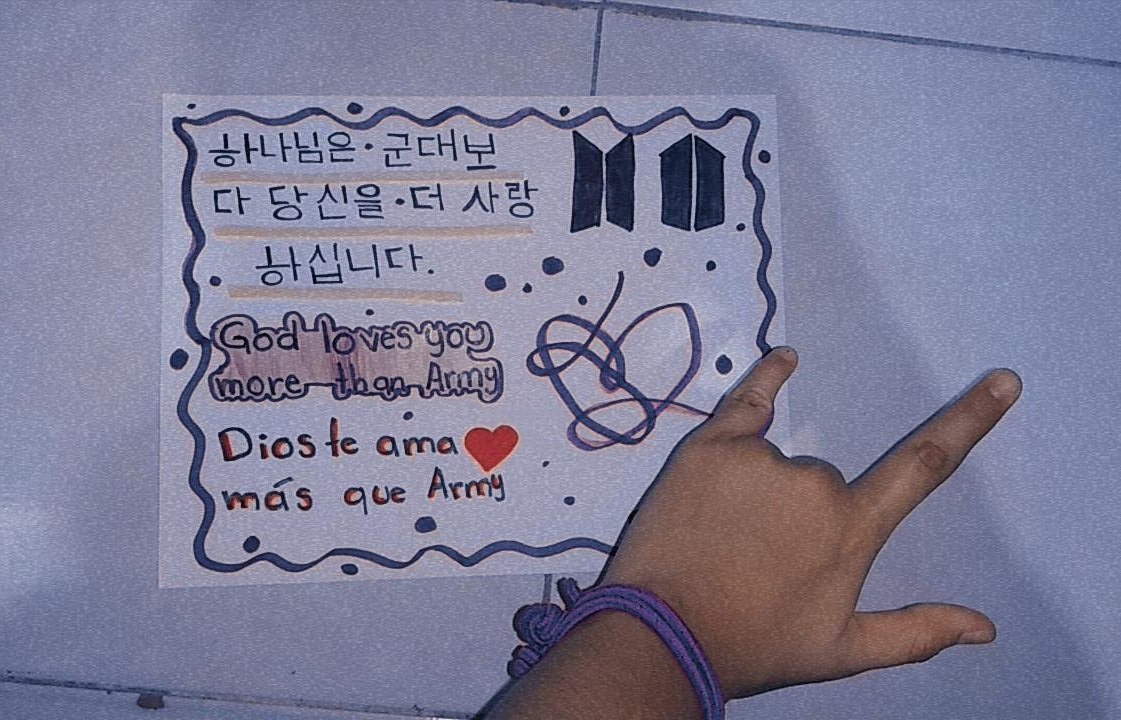 하나님은·군대보
다 당신을·더 사랑
하십니다.
God loves you
more than Army
Dios te ama
más que Army